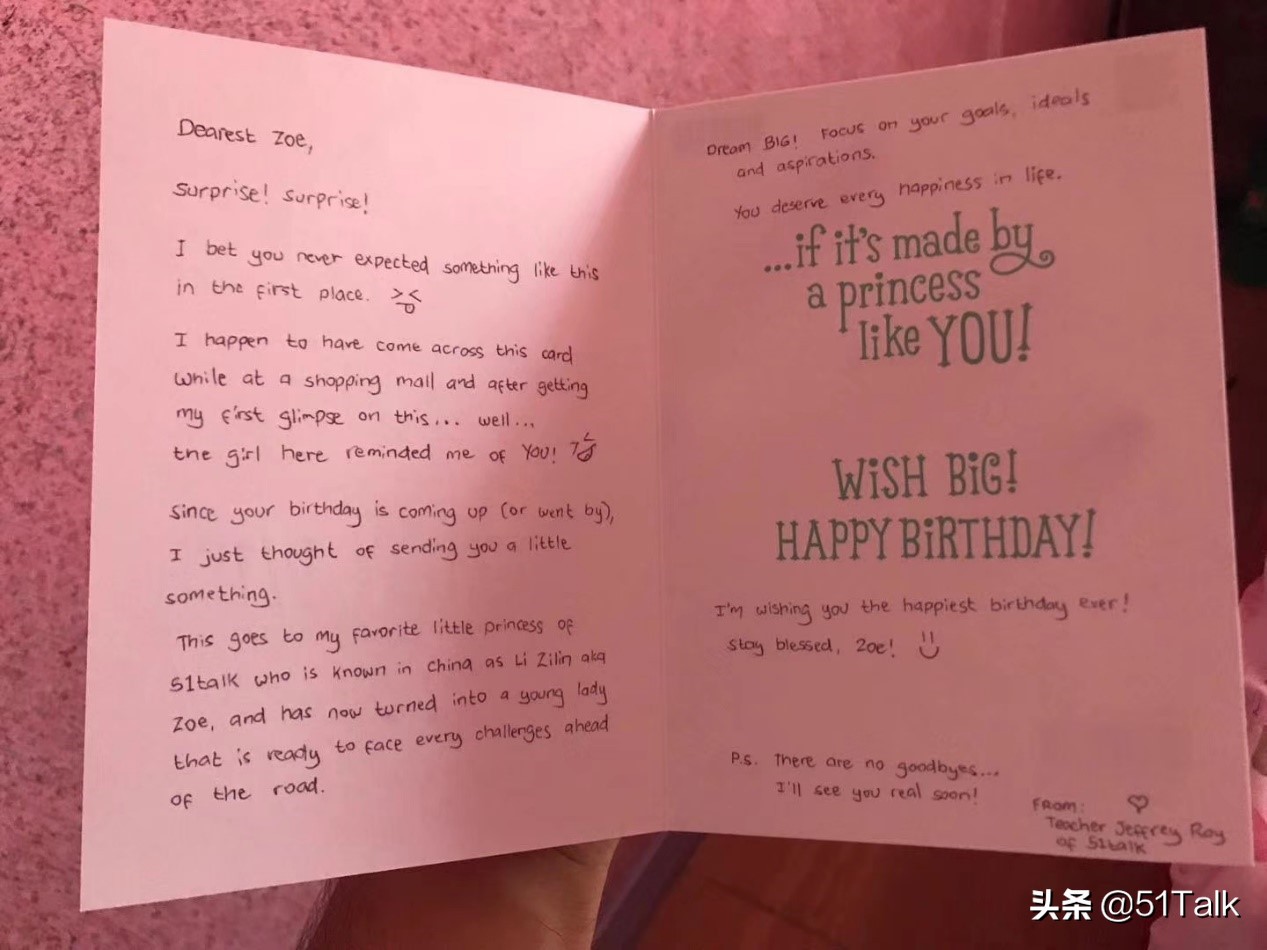 Dearest Zoe,
Surprise! Surprise!
I bet you never expected something like this
in the first place.
I happen to have come across this card
while at a shopping mall and after getting
my first glimpse on this... well...
the girl here reminded me of YOU!
Since your birthday is coming up (or went by),
I just thought of sending you a little
something.
This goes to my favorite little princess of
51talk who is known in China as Li Zilin aka
Zoe, and has now turned into a young lady
that is ready to face every challenges ahead
of the road.
Dream BIG! Focus on your goals, ideals
and aspirations.
You deserve every happiness in life.
...if it's made by
a princess
like YOU!
WiSH BiG!
HAPPY BiRTHDAY!
I'm wishing you the happiest birthday ever!
Stay blessed, Zoe!
P.s. There are no goodbyes...
I'll see you real soon!
From:
Teacher Jeffrey Roy
of 51talk
头条 @51Talk